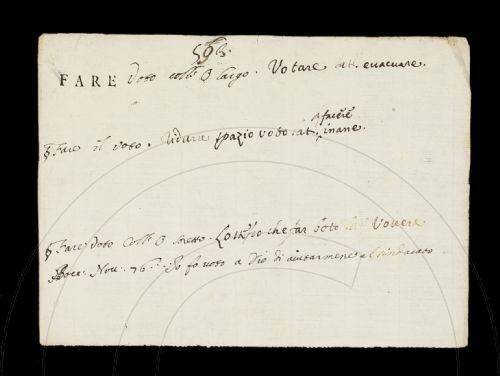 568.
FARE voto coll' O largo. Votare lat. evacuare.
facere
§ Fare il voto. ridurre spazio voto lat. inane.
§ Fare voto coll' O stretto. Lo stesso che far voto lat. Vovere
Bocc. Nov. 76. Io fo voto a Dio di aiutarmene al sindacato